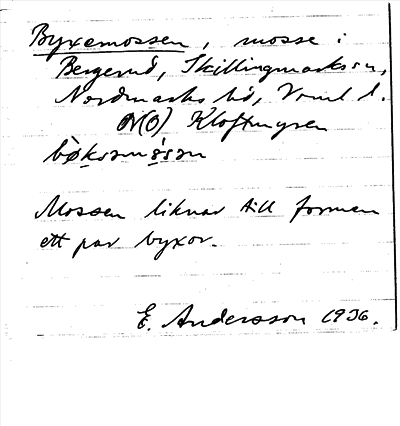 Byxemossen, mosse i
Bergerud, Skillingmarks sn,
Nordmarks hd, Vrml l.
(O) Kloftmyren
bøksəmåsən
Mossen liknar till formen
ett par byxor.
E. Andersson 1936.